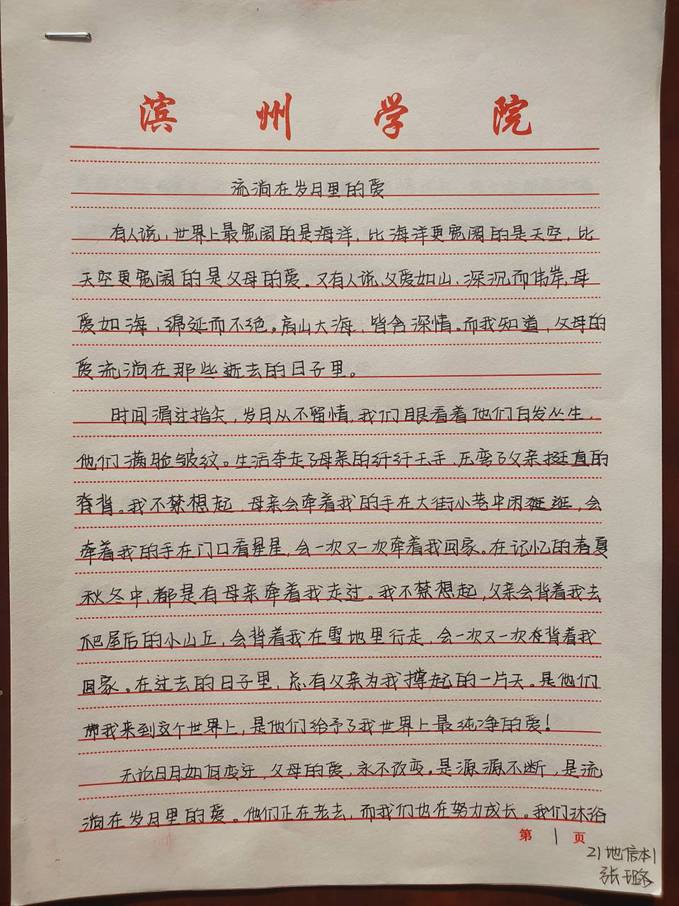 滨州学院
流淌在岁月里的爱
有人说，世界上最宽阔的是海洋，比海洋更宽阔的是天空，比
天空更宽阔的是父母的爱。又有人说，父爱如山，深沉而伟岸，母
爱如海，绵延而不绝。高山大海，皆含深情。而我知道，父母的
爱流淌在那些逝去的日子里。
时间滑过指尖，岁月从不留情，我们眼看着他们白发丛生，
他们满脸皱纹。生活夺走了母亲的纤纤玉手，压弯了父亲挺直的
脊背。我不禁想起，母亲会牵着我的手在大街小巷中闲逛逛，会
牵着我的手在门口看星星，会一次又一次牵着我回家。在记忆的春夏
秋冬中，都是有母亲牵着我走过。我不禁想起，父亲会背着我去
爬屋后的小山丘，会背着我在雪地里行走，会一次又一次背着我
回家。在过去的日子里，总有父亲为我撑起的一片天。是他们
带我来到这个世界上，是他们给予了我世界上最纯净的爱！
无论日月如何变迁，父母的爱，永不改变。是源源不断，是流
淌在岁月里的爱。他们正在老去，而我们也在努力成长。我们沐浴
第 1 页
21地信本1
张璐